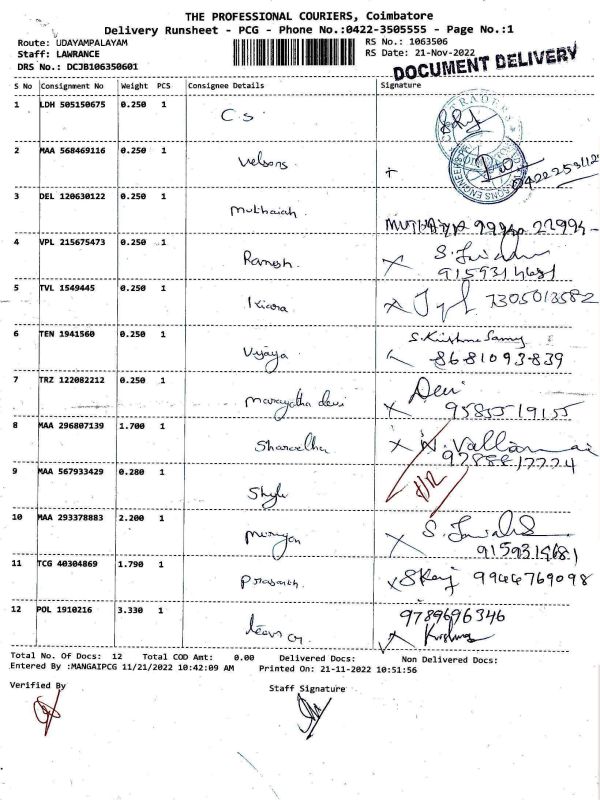 THE PROFESSIONAL COURIERS, Coimbatore
Delivery Runsheet - PCG - Phone No.:0422-3505555 - Page No.:1
Route: UDAYAMPALAYAM RS No.: 1063506
Staff: LAWRANCE RS Date: 21-Nov-2022
DRS No.: DCJB106350601 DOCUMENT DELIVERY
S No Consignment No Weight PCS Consignee Details Signature
1 LDH 505150675 0.250 1 C.S TRADERS
2 MAA 568469116 0.250 1 Welsons
3 DEL 120630122 0.250 1 Muthaiah
4 VPL 215675473 0.250 1 Ramesh.
5 TVL 1549445 0.250 1 Kiara 7305013582
6 TEN 1941560 0.250 1 Vijaya S.Krishna Samy
8681093839
7 TRZ 122082212 0.250 1 Devi
9585519155
8 MAA 296807139 1.700 1
9 MAA 567933429 0.280 1
10 MAA 293378883 2.200 1 Murugan
11 TCG 40304869 1.790 1 Prasanth 9944769098
12 POL 1910216 3.330 1 9789696346
Krishna
Total No. Of Docs: 12 Total COD Amt: 0.00 Delivered Docs: Non Delivered Docs:
Entered By :MANGAIPCG 11/21/2022 10:42:09 AM Printed On: 21-11-2022 10:51:56
Verified By Staff Signature